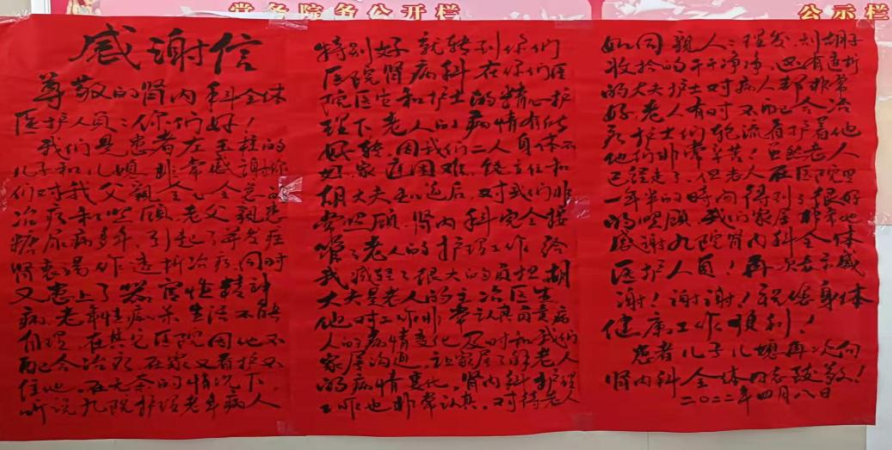 党务院务公开栏
公示栏
感谢信
尊敬的肾内科全体
医护人员：你们好！
我们是患者左玉桂的
儿子和儿媳，非常感谢你
们对我父亲全、全意的
治疗和照顾，老父亲患
糖尿病多年，引起了并发症
肾衰竭作透析治疗，同时
又患上了器官性精神
病，老年性痴呆，生活不能
自理，在其它医院因他不
配合治疗，在家又看护不
住他，在无奈的情况下，
听说九院护理老年病人
特别好，就转到你们
医院肾病科，在你们医
院医生和护士的精心护
理下老人的病情有所
好转，因我们二人身体不
好，家庭困难，
胡大夫知道后，对我们非
常照顾，肾内科完全接
管了老人的护理工作，给
我减轻了很大的负担，胡
大夫是老人的主治医生，
他对工作非常认真负责，病
人的病情变化及时和我们
家属沟通，让家属了解老人
的病情变化。肾内科护理
工作也非常认真，对待老人
如同亲人：理发、刮胡子
收拾的干干净净，还有透析
的大夫护士对病人都非常
好，老人有时不配合治
疗，护士们轮流看护着他
他们非常辛苦！虽然老人
已经走了，但老人在医院里
一年半的时间得到了很好
的照顾，我们家属非常地
感谢九院肾内科全体
医护人员！再次表示感
谢！谢谢！祝您身体
健康工作顺利！
患者儿子儿媳再次向
肾内科全体同志致敬！
二〇二二年四月八日